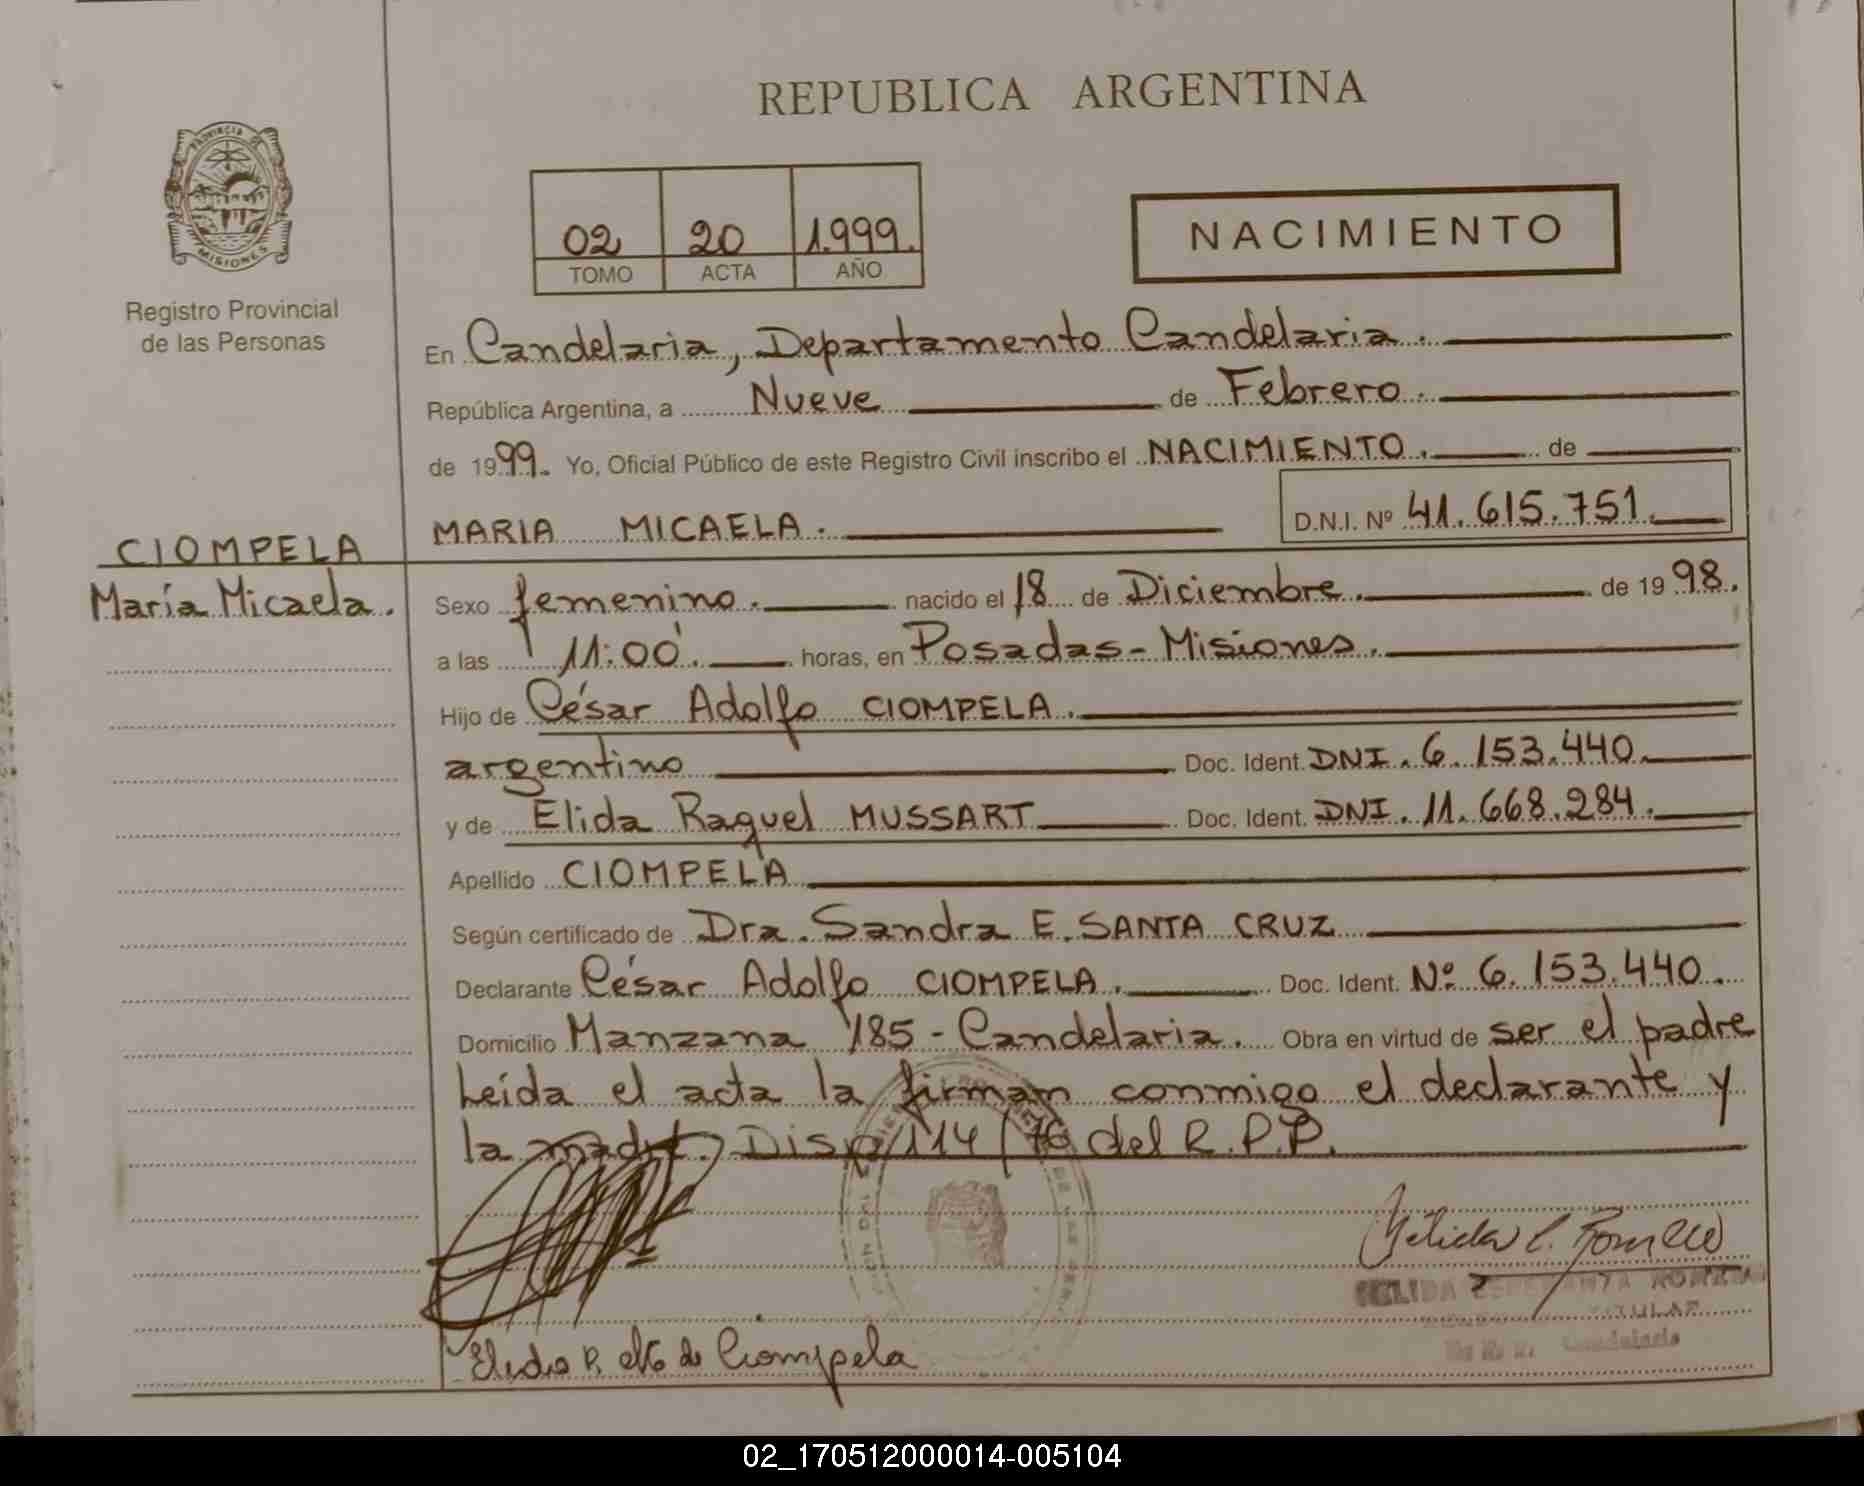 REPUBLICA ARGENTINA
PROVINCIA DE
MISIONES
Registro Provincial
de las Personas
02 20 1.999.
TOMO ACTA AÑO
NACIMIENTO
En Candelaria, Departamento Candelaria.
República Argentina, a Nueve de Febrero.
de 1999. Yo, Oficial Público de este Registro Civil inscribo el NACIMIENTO. de
MARIA MICAELA. D.N.I. Nº 41.615.751.
CIOMPELA
María Micaela.
Sexo femenino. nacido el 18 de Diciembre. de 1998.
a las 11:00. horas, en Posadas - Misiones.
Hijo de César Adolfo CIOMPELA.
argentino Doc. Ident. DNI. 6.153.440.
y de Elida Raquel MUSSART Doc. Ident. DNI. 11.668.284.
Apellido CIOMPELA
Según certificado de Dra. Sandra E. SANTA CRUZ
Declarante César Adolfo CIOMPELA. Doc. Ident. Nº 6.153.440.
Domicilio Manzana 185 - Candelaria. Obra en virtud de ser el padre
Leída el acta la firman conmigo el declarante y
la madre. Disp 114/76 del R.P.P.
TITULAR
Candelaria
Elida R. de Ciompela
02_170512000014-005104